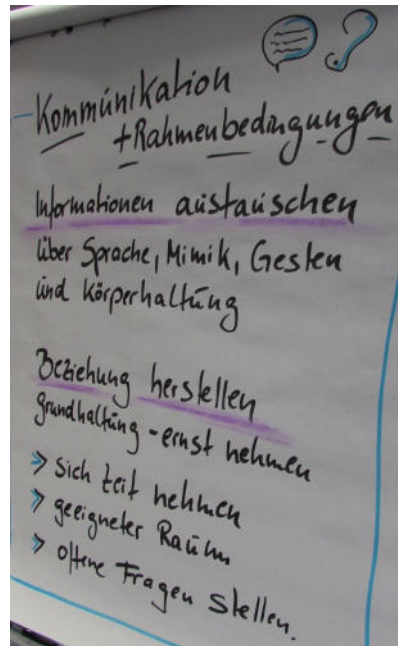 Kommunikation
+Rahmenbedingungen
Informationen austauschen
über Sprache, Mimik, Gesten
und Körperhaltung
Beziehung herstellen
Grundhaltung - ernst nehmen
» sich Zeit nehmen
» geeigneter Raum
» offene Fragen stellen.